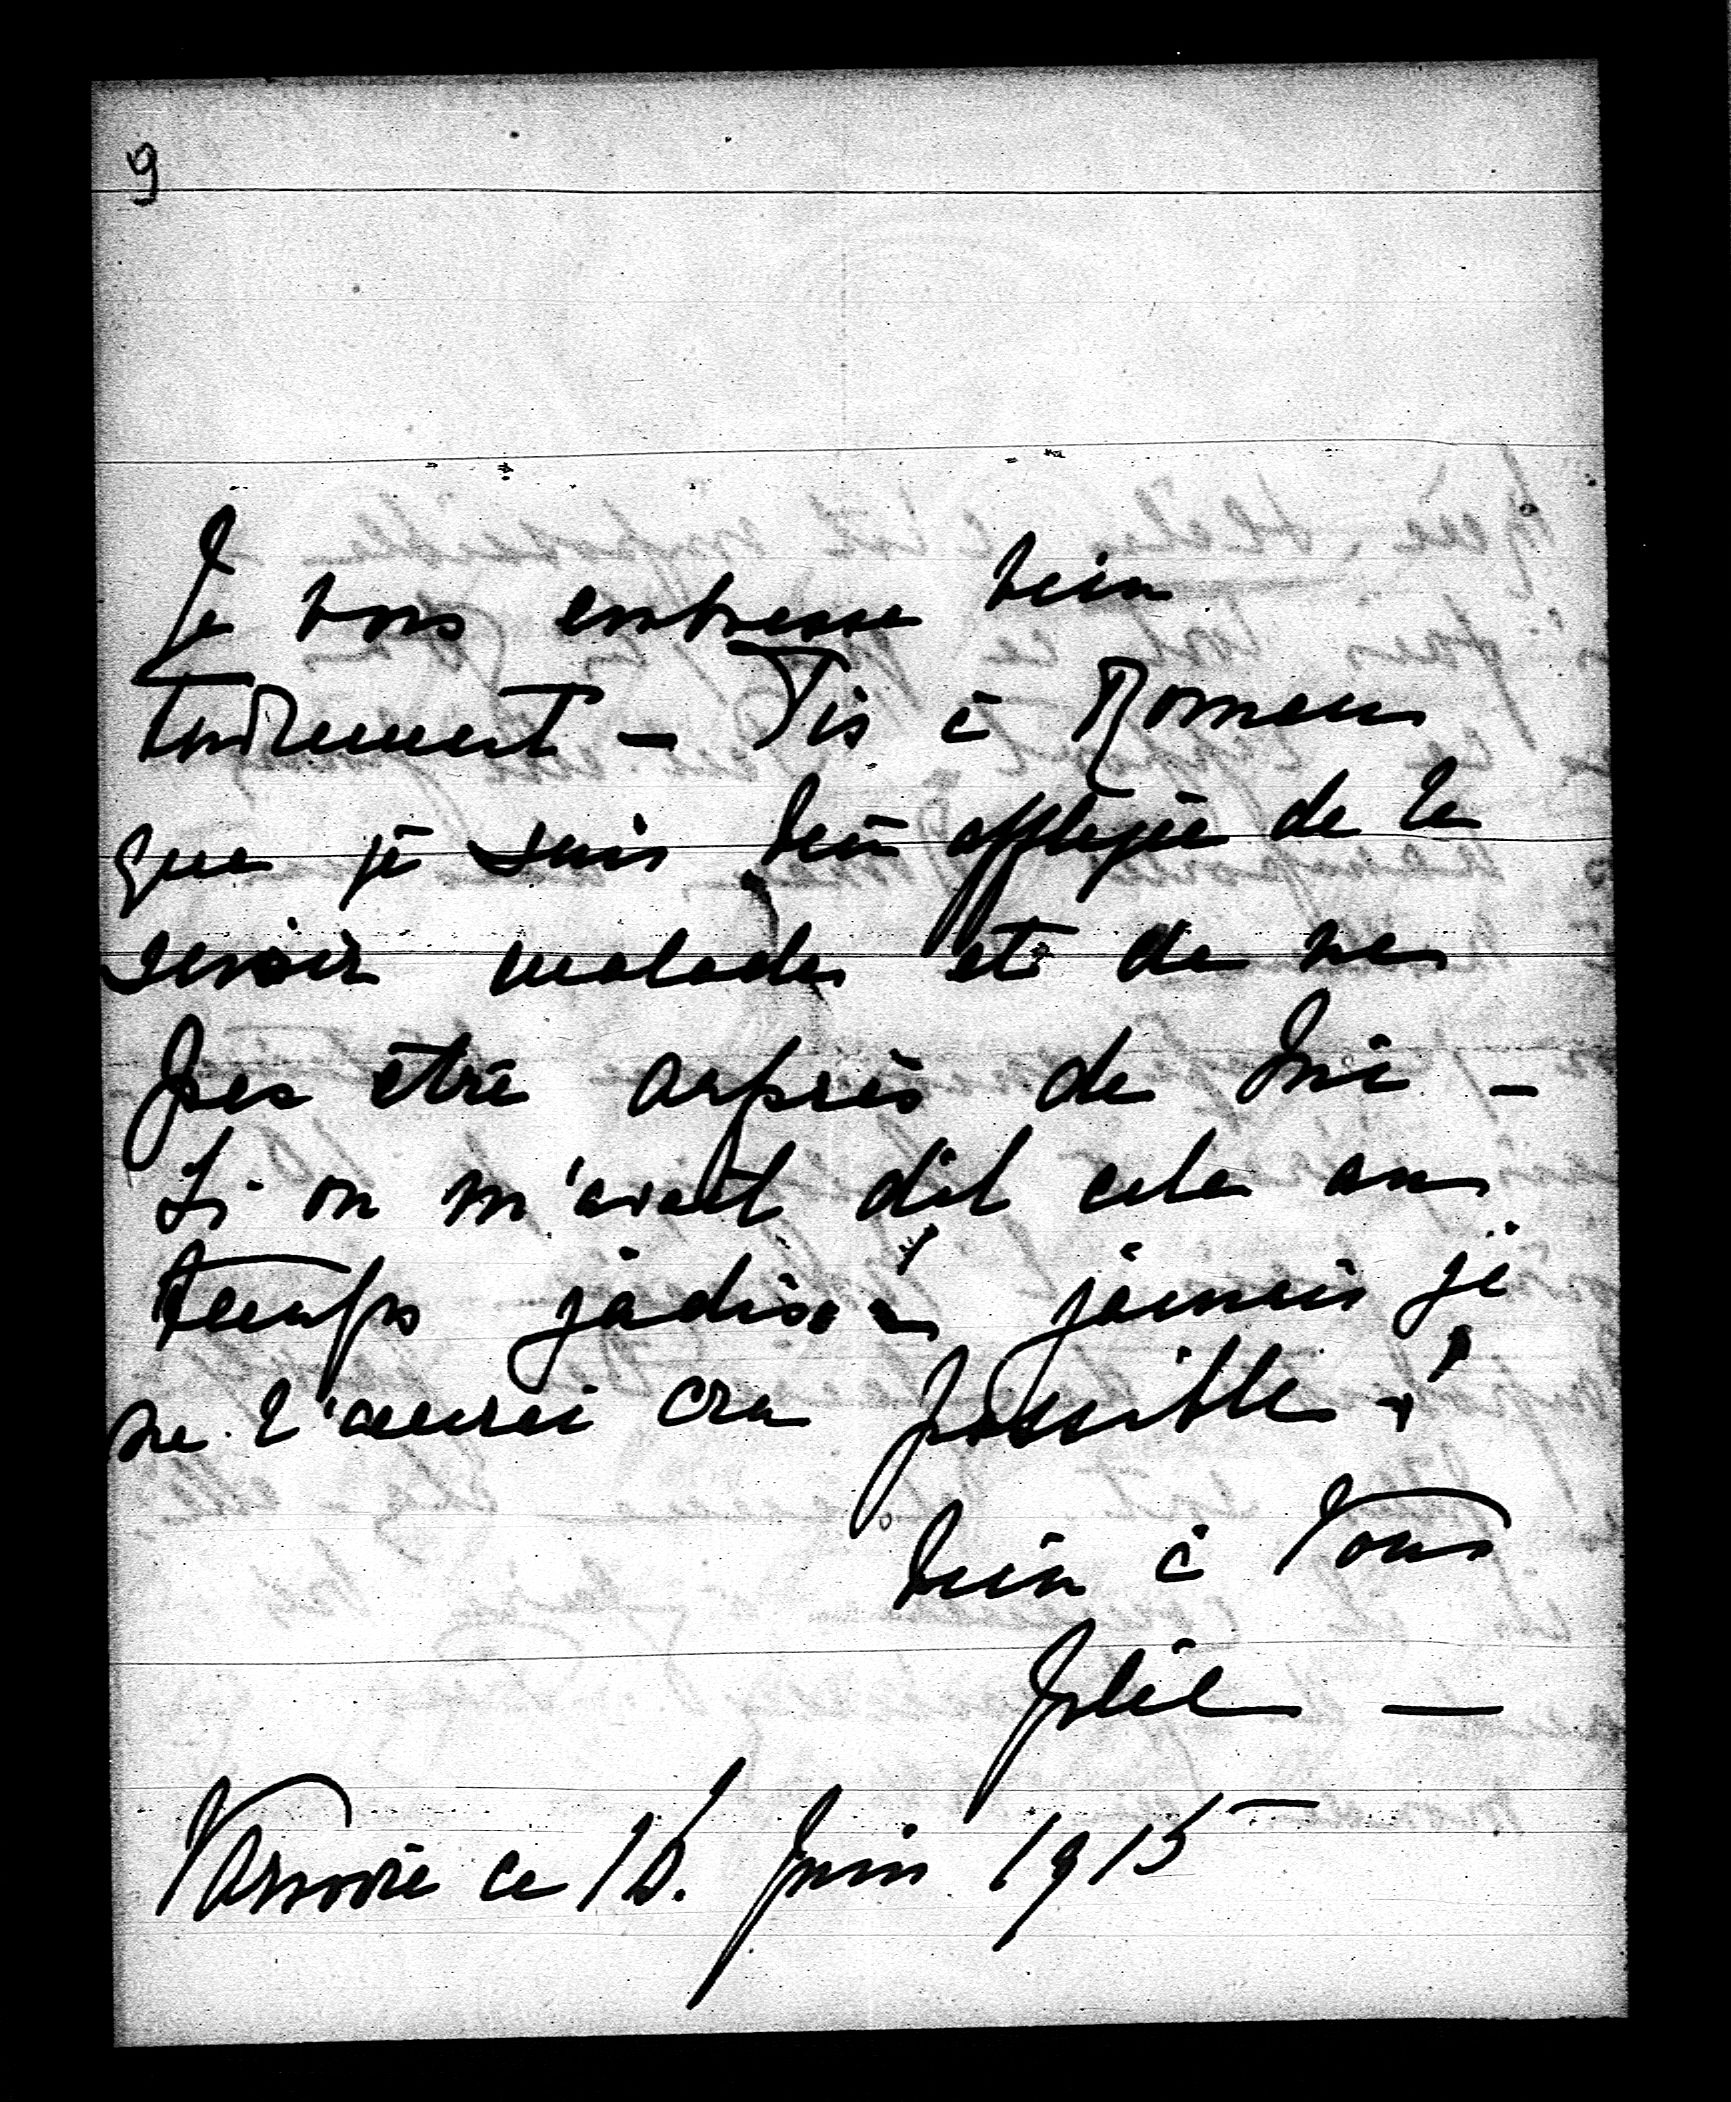 9
Je vous embrasse bien
tendrement – Dis à Roman
que je suis bien affligée de le
savoir malade et de ne
pas être auprès de lui –
Si on m'avait dit cela au
temps jadis.. jamais je
ne l'aurai cru possible!
bien à Vous
Varsovie ce 18. Juin 1915